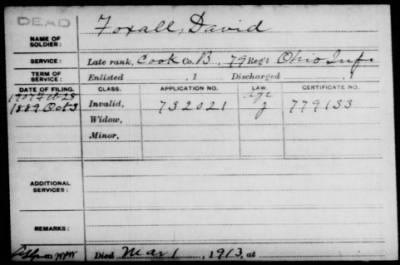 DEAD
NAME OF SOLDIER: Foxall, David
SERVICE: Late rank, Cook Co. B, 79 Reg't Ohio Inf.
TERM OF SERVICE: Enlisted , 1 Discharged , 1
DATE OF FILING. CLASS. APPLICATION NO. LAW. CERTIFICATE NO.
1907 Feb 25 Age
1889 Oct 3 Invalid, 732021 J 779133
Widow,
Minor,
ADDITIONAL SERVICES:
REMARKS:
Died Mar 1, 1913, at